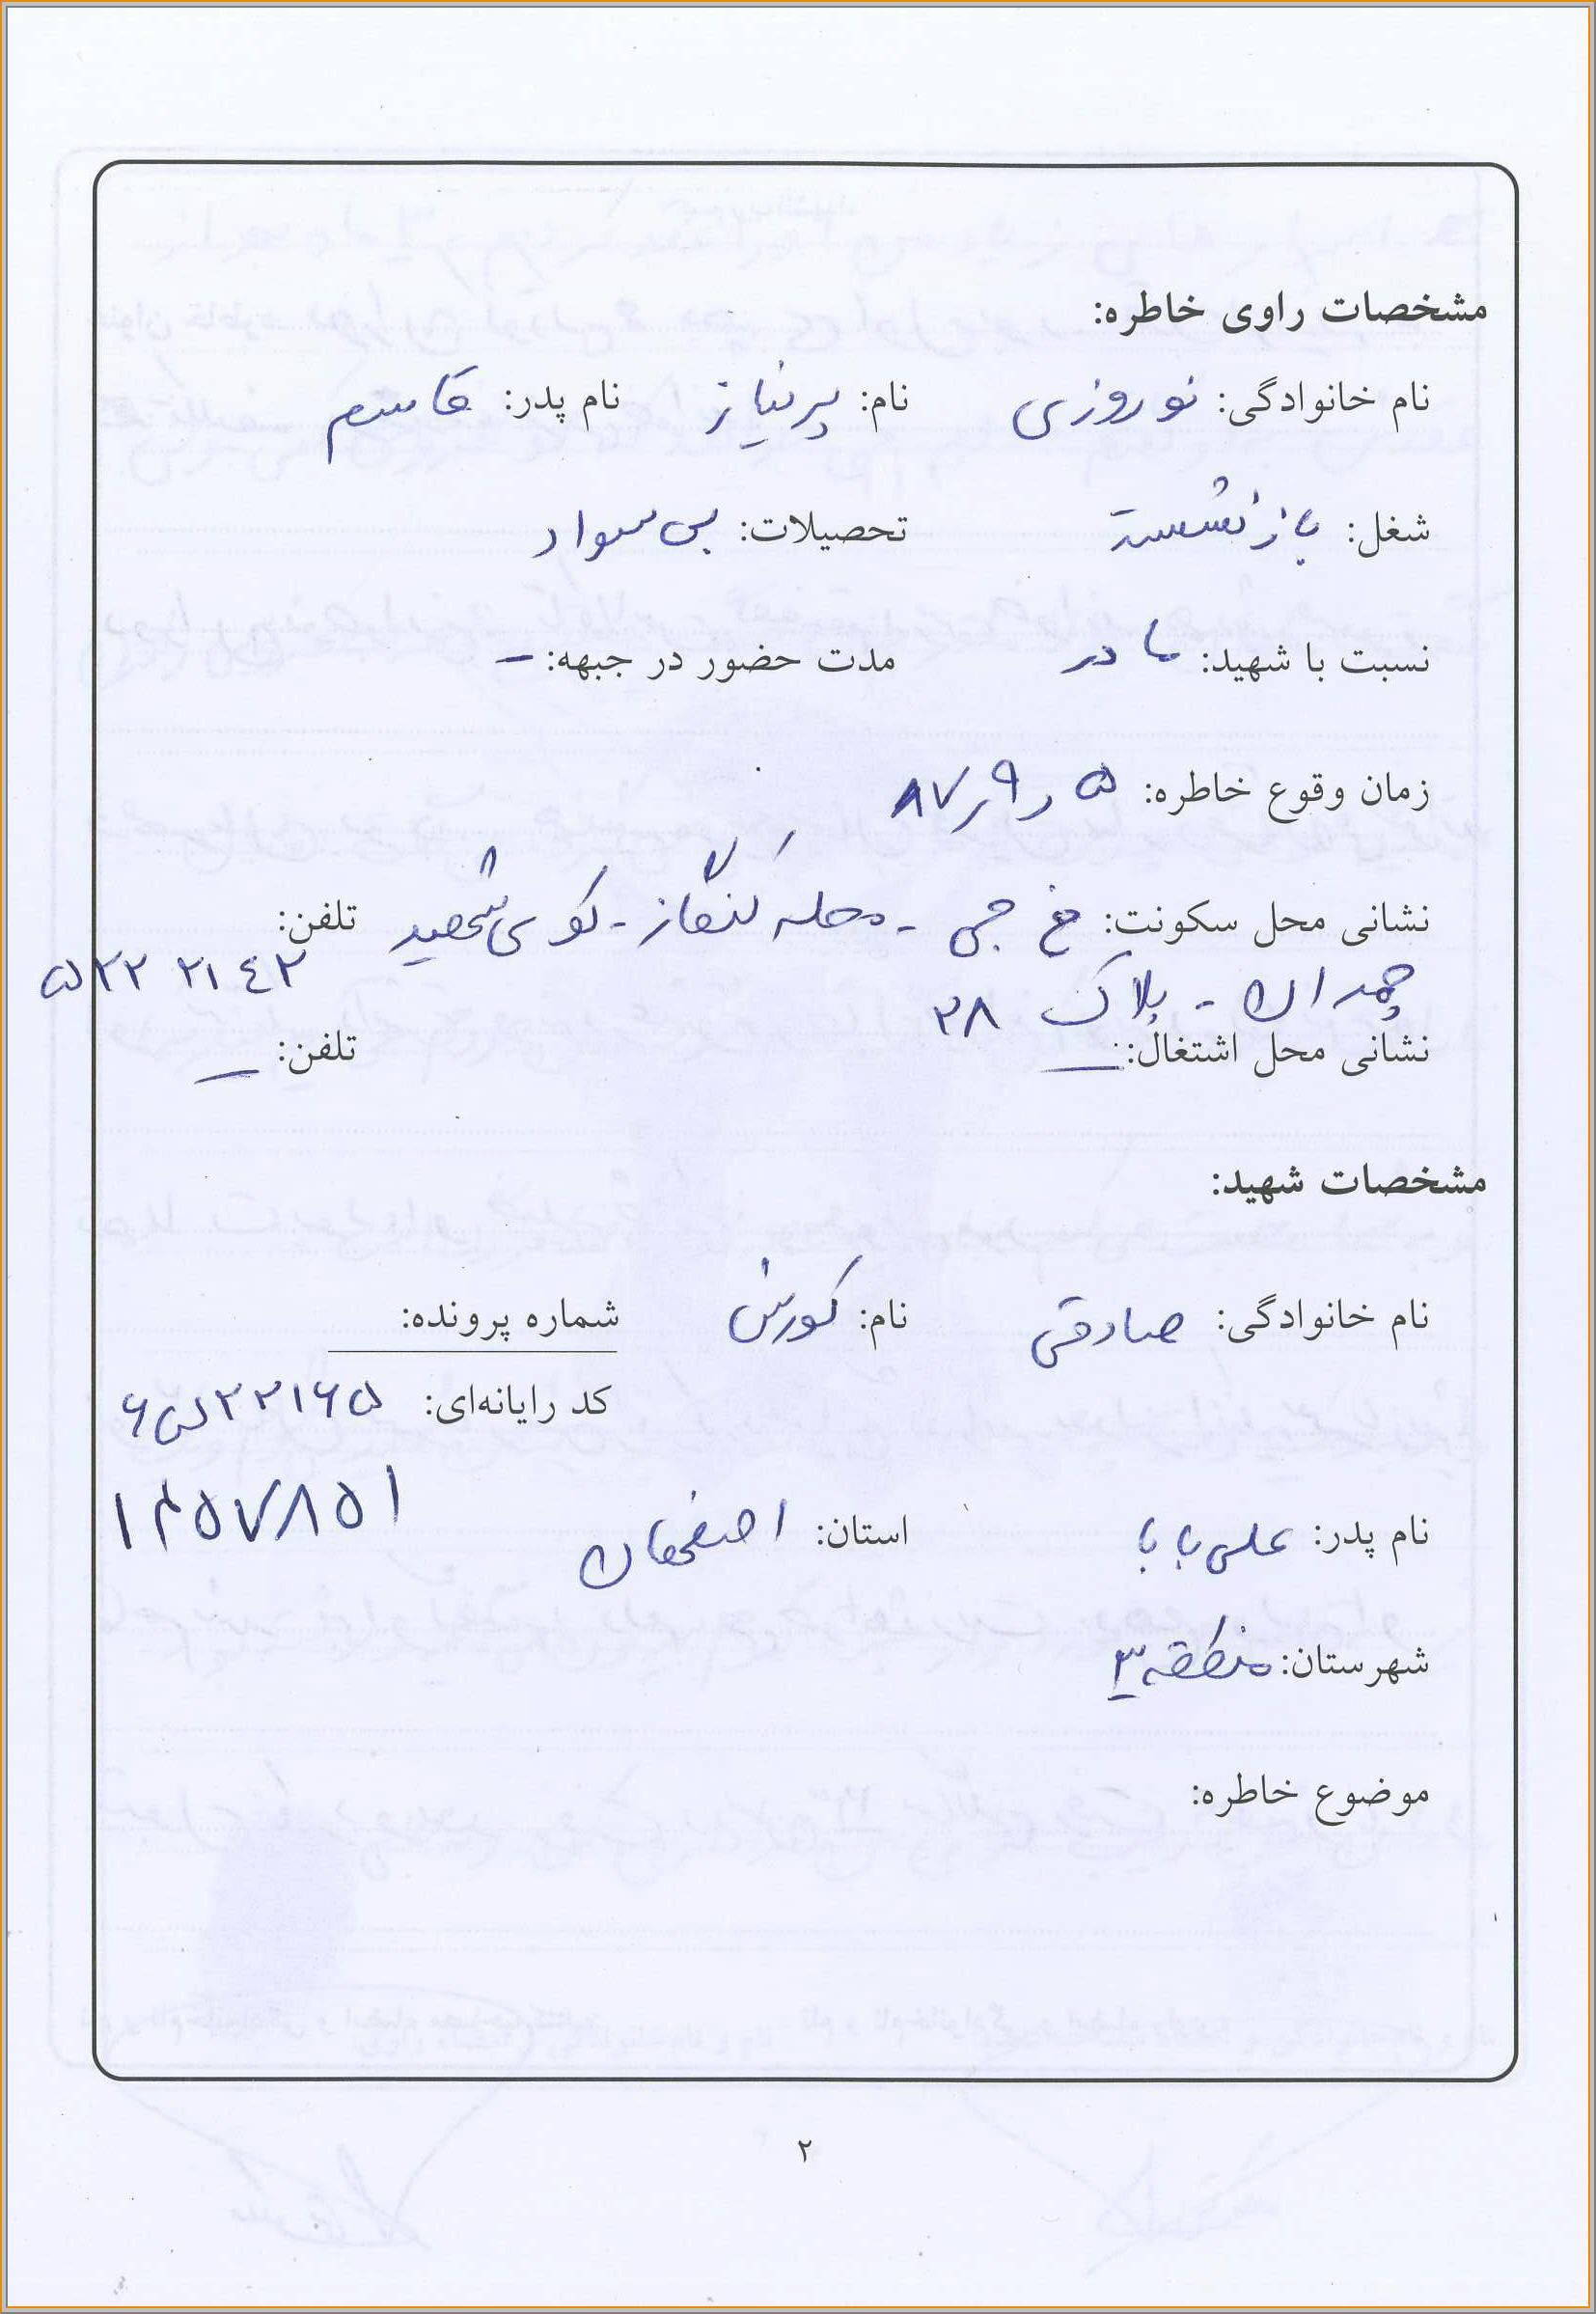 مشخصات راوی خاطره:
نام خانوادگی: نوروزی نام: پرنیاز نام پدر: قاسم
شغل: بازنشسته تحصیلات: بی سواد
نسبت با شهید: مادر مدت حضور در جبهه: –
زمان وقوع خاطره: ۵ ر ۹ ر ۸۷
نشانی محل سکونت: خ جی - محله - کوی شهید تلفن:
چمران - پلاک ۲۸ ۵۲۲ ۲۱ ٤۲
نشانی محل اشتغال: — تلفن: —
مشخصات شهید:
نام خانوادگی: صادقی نام: کورش شماره پرونده:
کد رایانه‌ای:
نام پدر: علی بابا استان: اصفهان ۱۴۵۷۸۵۱
شهرستان: منطقه ۳
موضوع خاطره:
۲